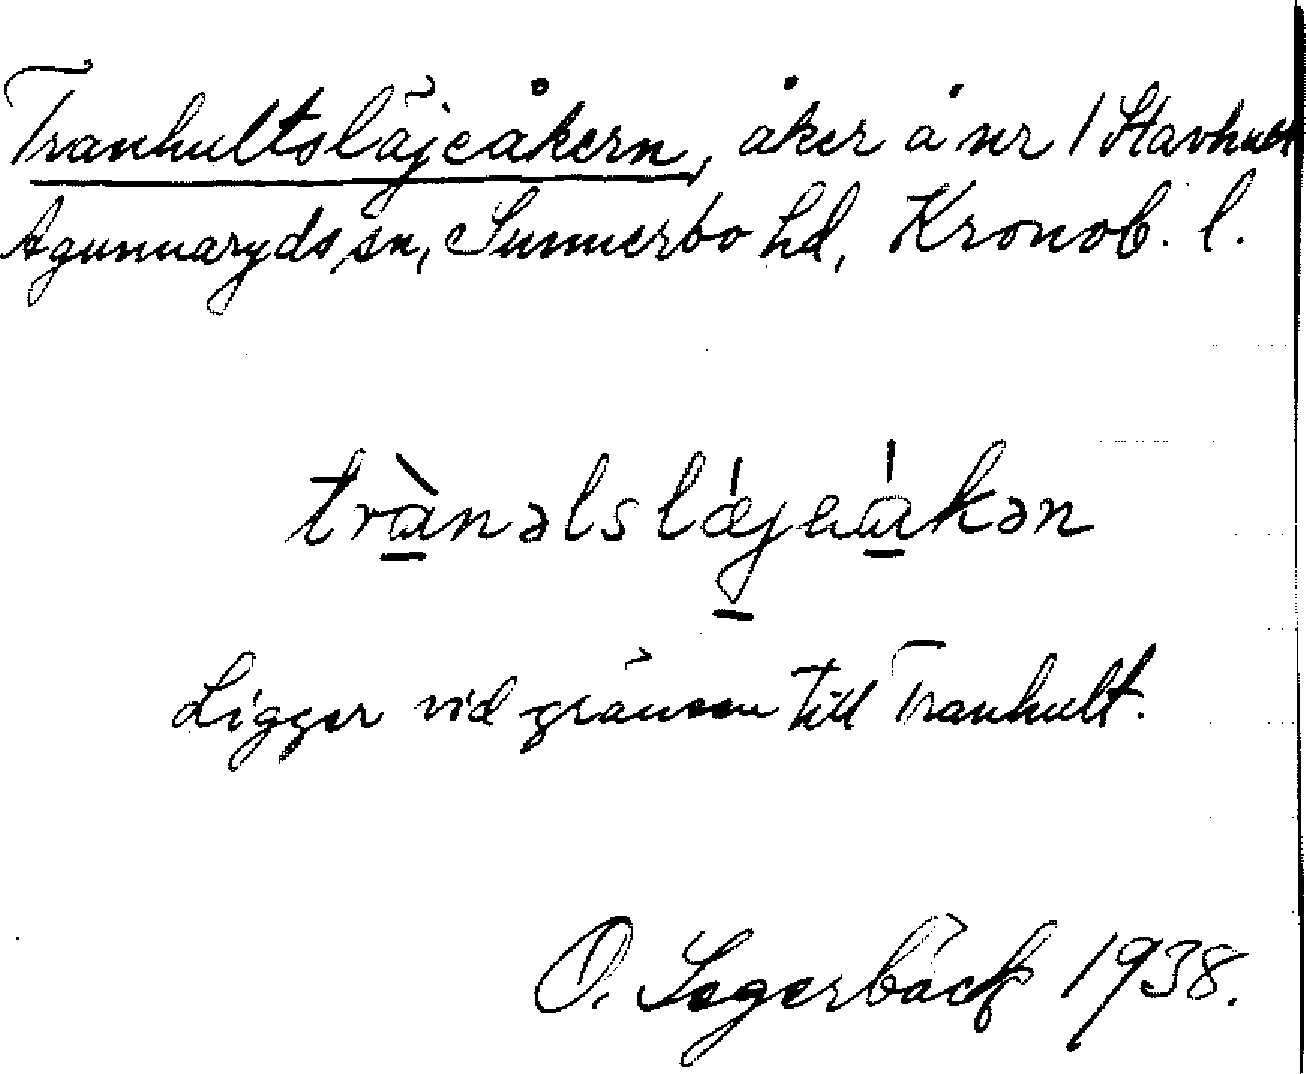 Tranhultsläjeåkern, åker å nr 1 Stavhult
Agunnaryds sn, Sunnerbo hd, Kronob. l.
trànəlslǽjeákən
Ligger vid gränsen till Tranhult.
O. Segerbäck 1938.